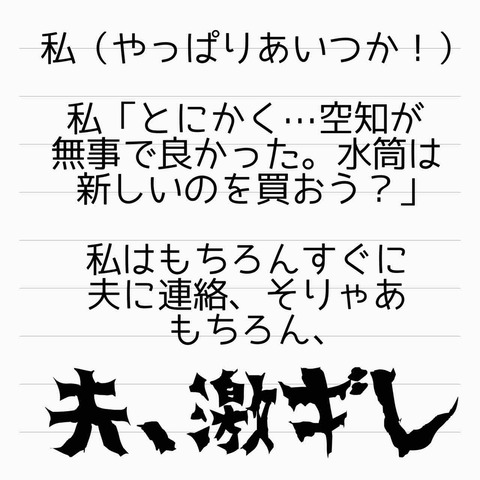 私（やっぱりあいつか！）
私「とにかく…空知が
無事で良かった。水筒は
新しいのを買おう？」
私はもちろんすぐに
夫に連絡、そりゃあ
もちろん、
夫、激ギレ